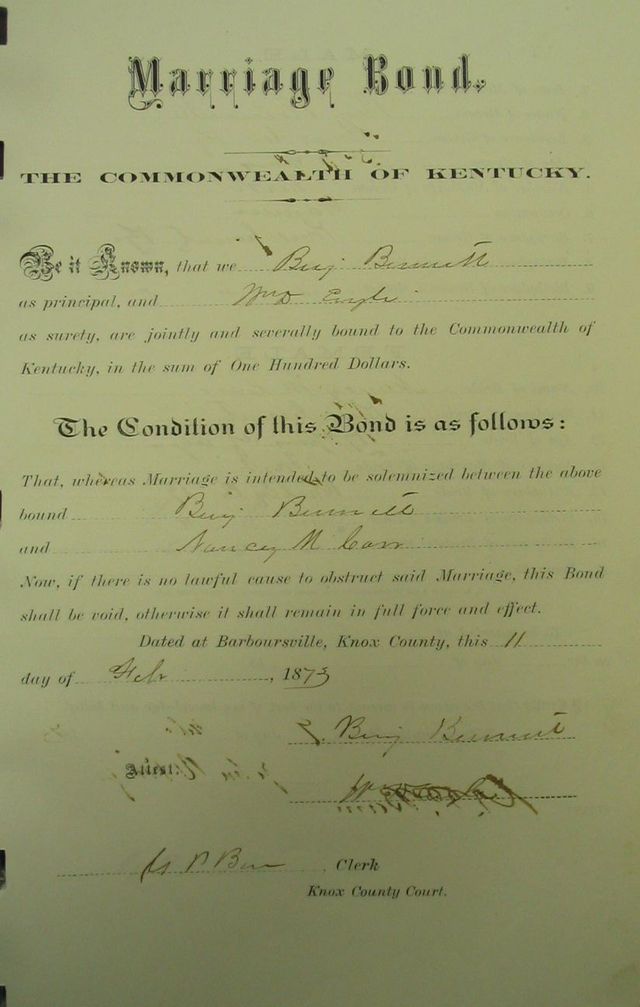 Marriage Bond.
THE COMMONWEALTH OF KENTUCKY.
Be it Known, that we Benj Bennett
as principal, and Wm D Engle
as surety, are jointly and severally bound to the Commonwealth of
Kentucky, in the sum of One Hundred Dollars.
The Condition of this Bond is as follows:
That, whereas Marriage is intended to be solemnized between the above
bound Benj Bennett
and Nancy M Carr
Now, if there is no lawful cause to obstruct said Marriage, this Bond
shall be void, otherwise it shall remain in full force and effect.
Dated at Barboursville, Knox County, this 11
day of Feb , 1873
Benj Bennett
Attest:
Clerk
Knox County Court.